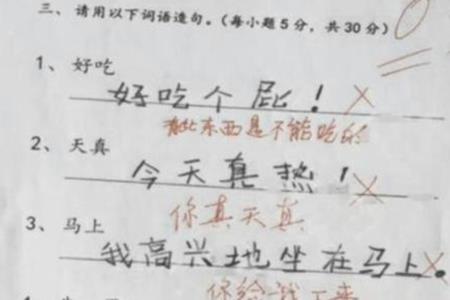 三、请用以下词语造句。(每小题5分,共30分)
1、好吃
好吃个屁!
有些东西是不能吃的
2、天真
今天真热!
你真天真
3、马上
我高兴地坐在马上。
你给我下来